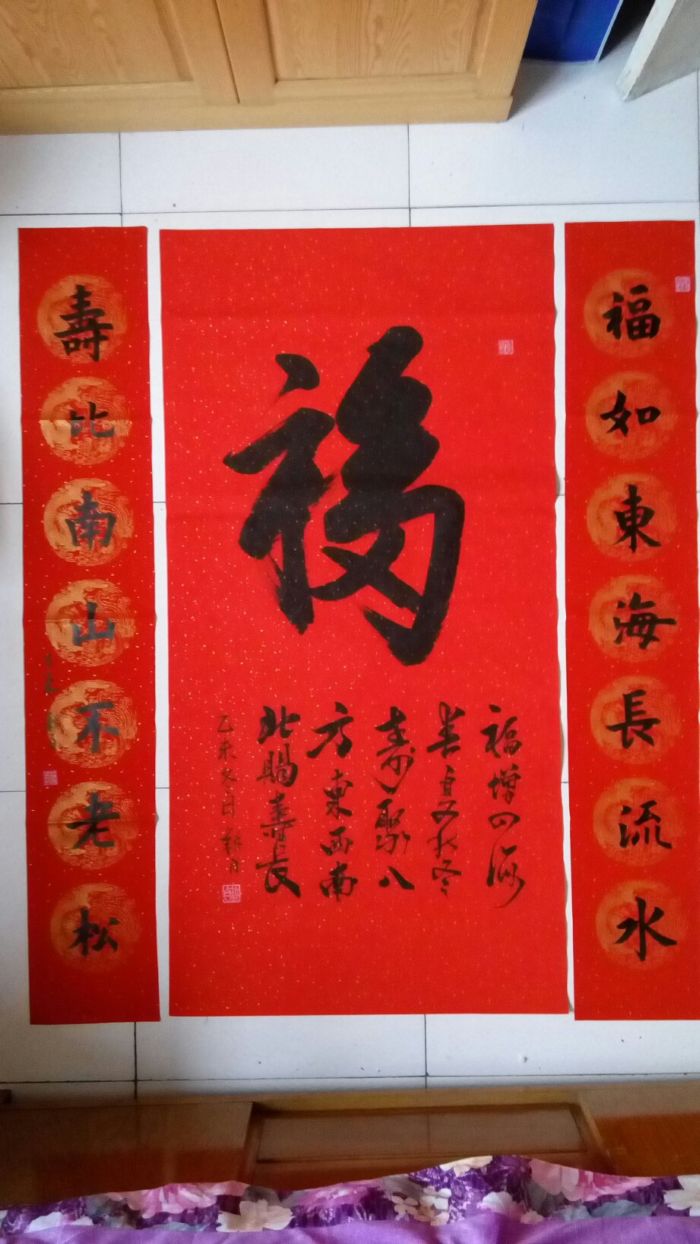 福如東海長流水
福
福增四海
春夏秋冬
寿聚八
方東西南
北賜壽長
乙未冬月
壽比南山不老松